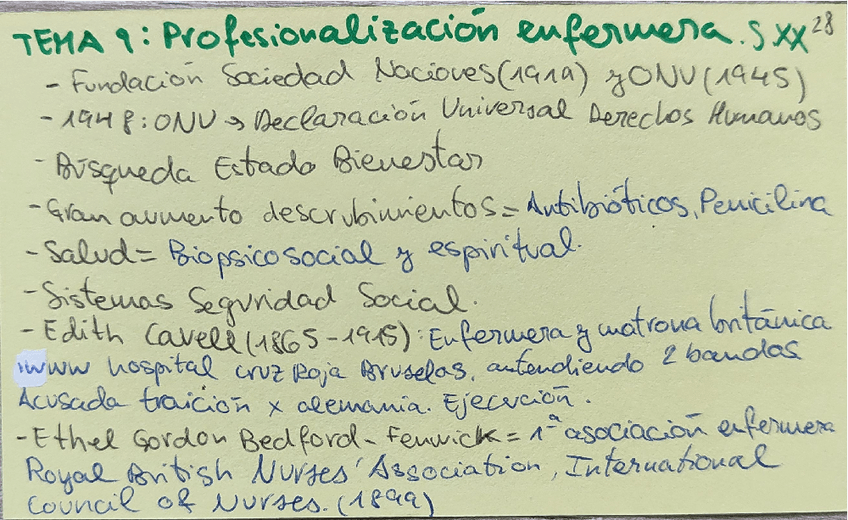 TEMA 9: Profesionalización enfermera. S XX 28
- Fundación Sociedad Naciones (1919) y ONU (1945)
- 1948: ONU → Declaración Universal Derechos Humanos
- Búsqueda Estado Bienestar
- Gran aumento descrubimientos = Antibióticos, Penicilina
- Salud = Biopsicosocial y espiritual.
- Sistemas Seguridad Social.
- Edith Cavell (1865-1915): Enfermera y matrona británica
IWWW hospital cruz Roja Bruselas, antendiendo 2 bandos
Acusada traición x alemania. Ejecución.
- Ethel Gordon Bedford-Fenwick = 1ª asociación enfermera
Royal British Nurses' Association, International
Council of Nurses. (1899)